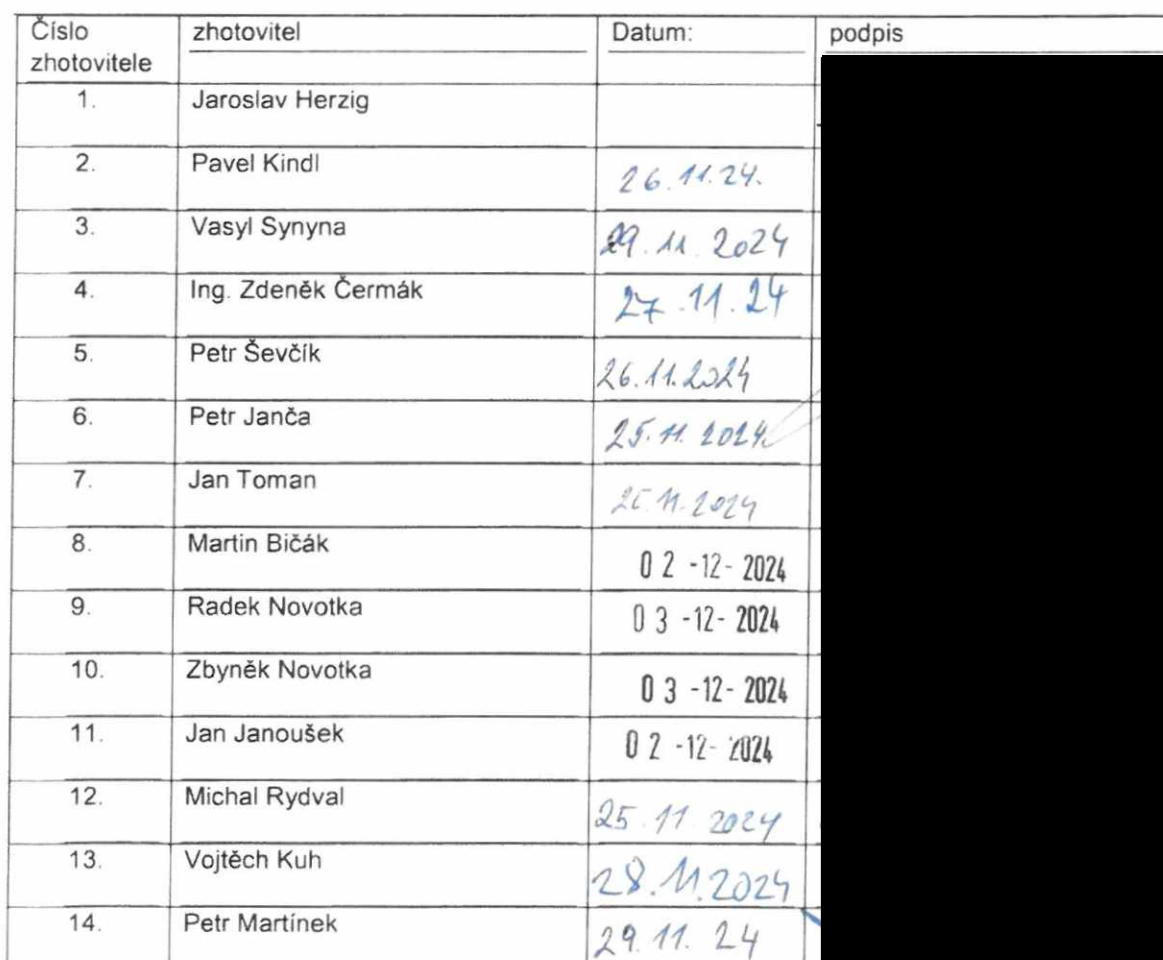 Číslo zhotovitele zhotovitel Datum: podpis
1. Jaroslav Herzig
2. Pavel Kindl 26.11.24.
3. Vasyl Synyna 29.11.2024
4. Ing. Zdeněk Čermák 27.11.24
5. Petr Ševčík 26.11.2024
6. Petr Janča 25.11.2024
7. Jan Toman 25.11.2024
8. Martin Bičák 02-12-2024
9. Radek Novotka 03-12-2024
10. Zbyněk Novotka 03-12-2024
11. Jan Janoušek 02-12-2024
12. Michal Rydval 25.11.2024
13. Vojtěch Kuh 28.11.2024
14. Petr Martínek 29.11.24